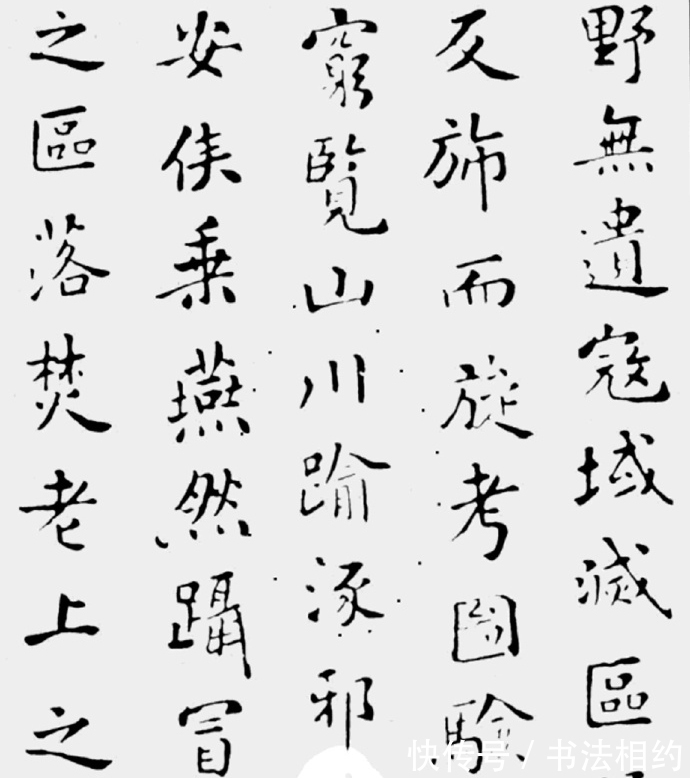 野無遺寇域滅區
反旆而旋考圖驗
窮覽山川踰涿邪
安侯乗燕然躡冒
之區落焚老上之
快传号 / 书法相约